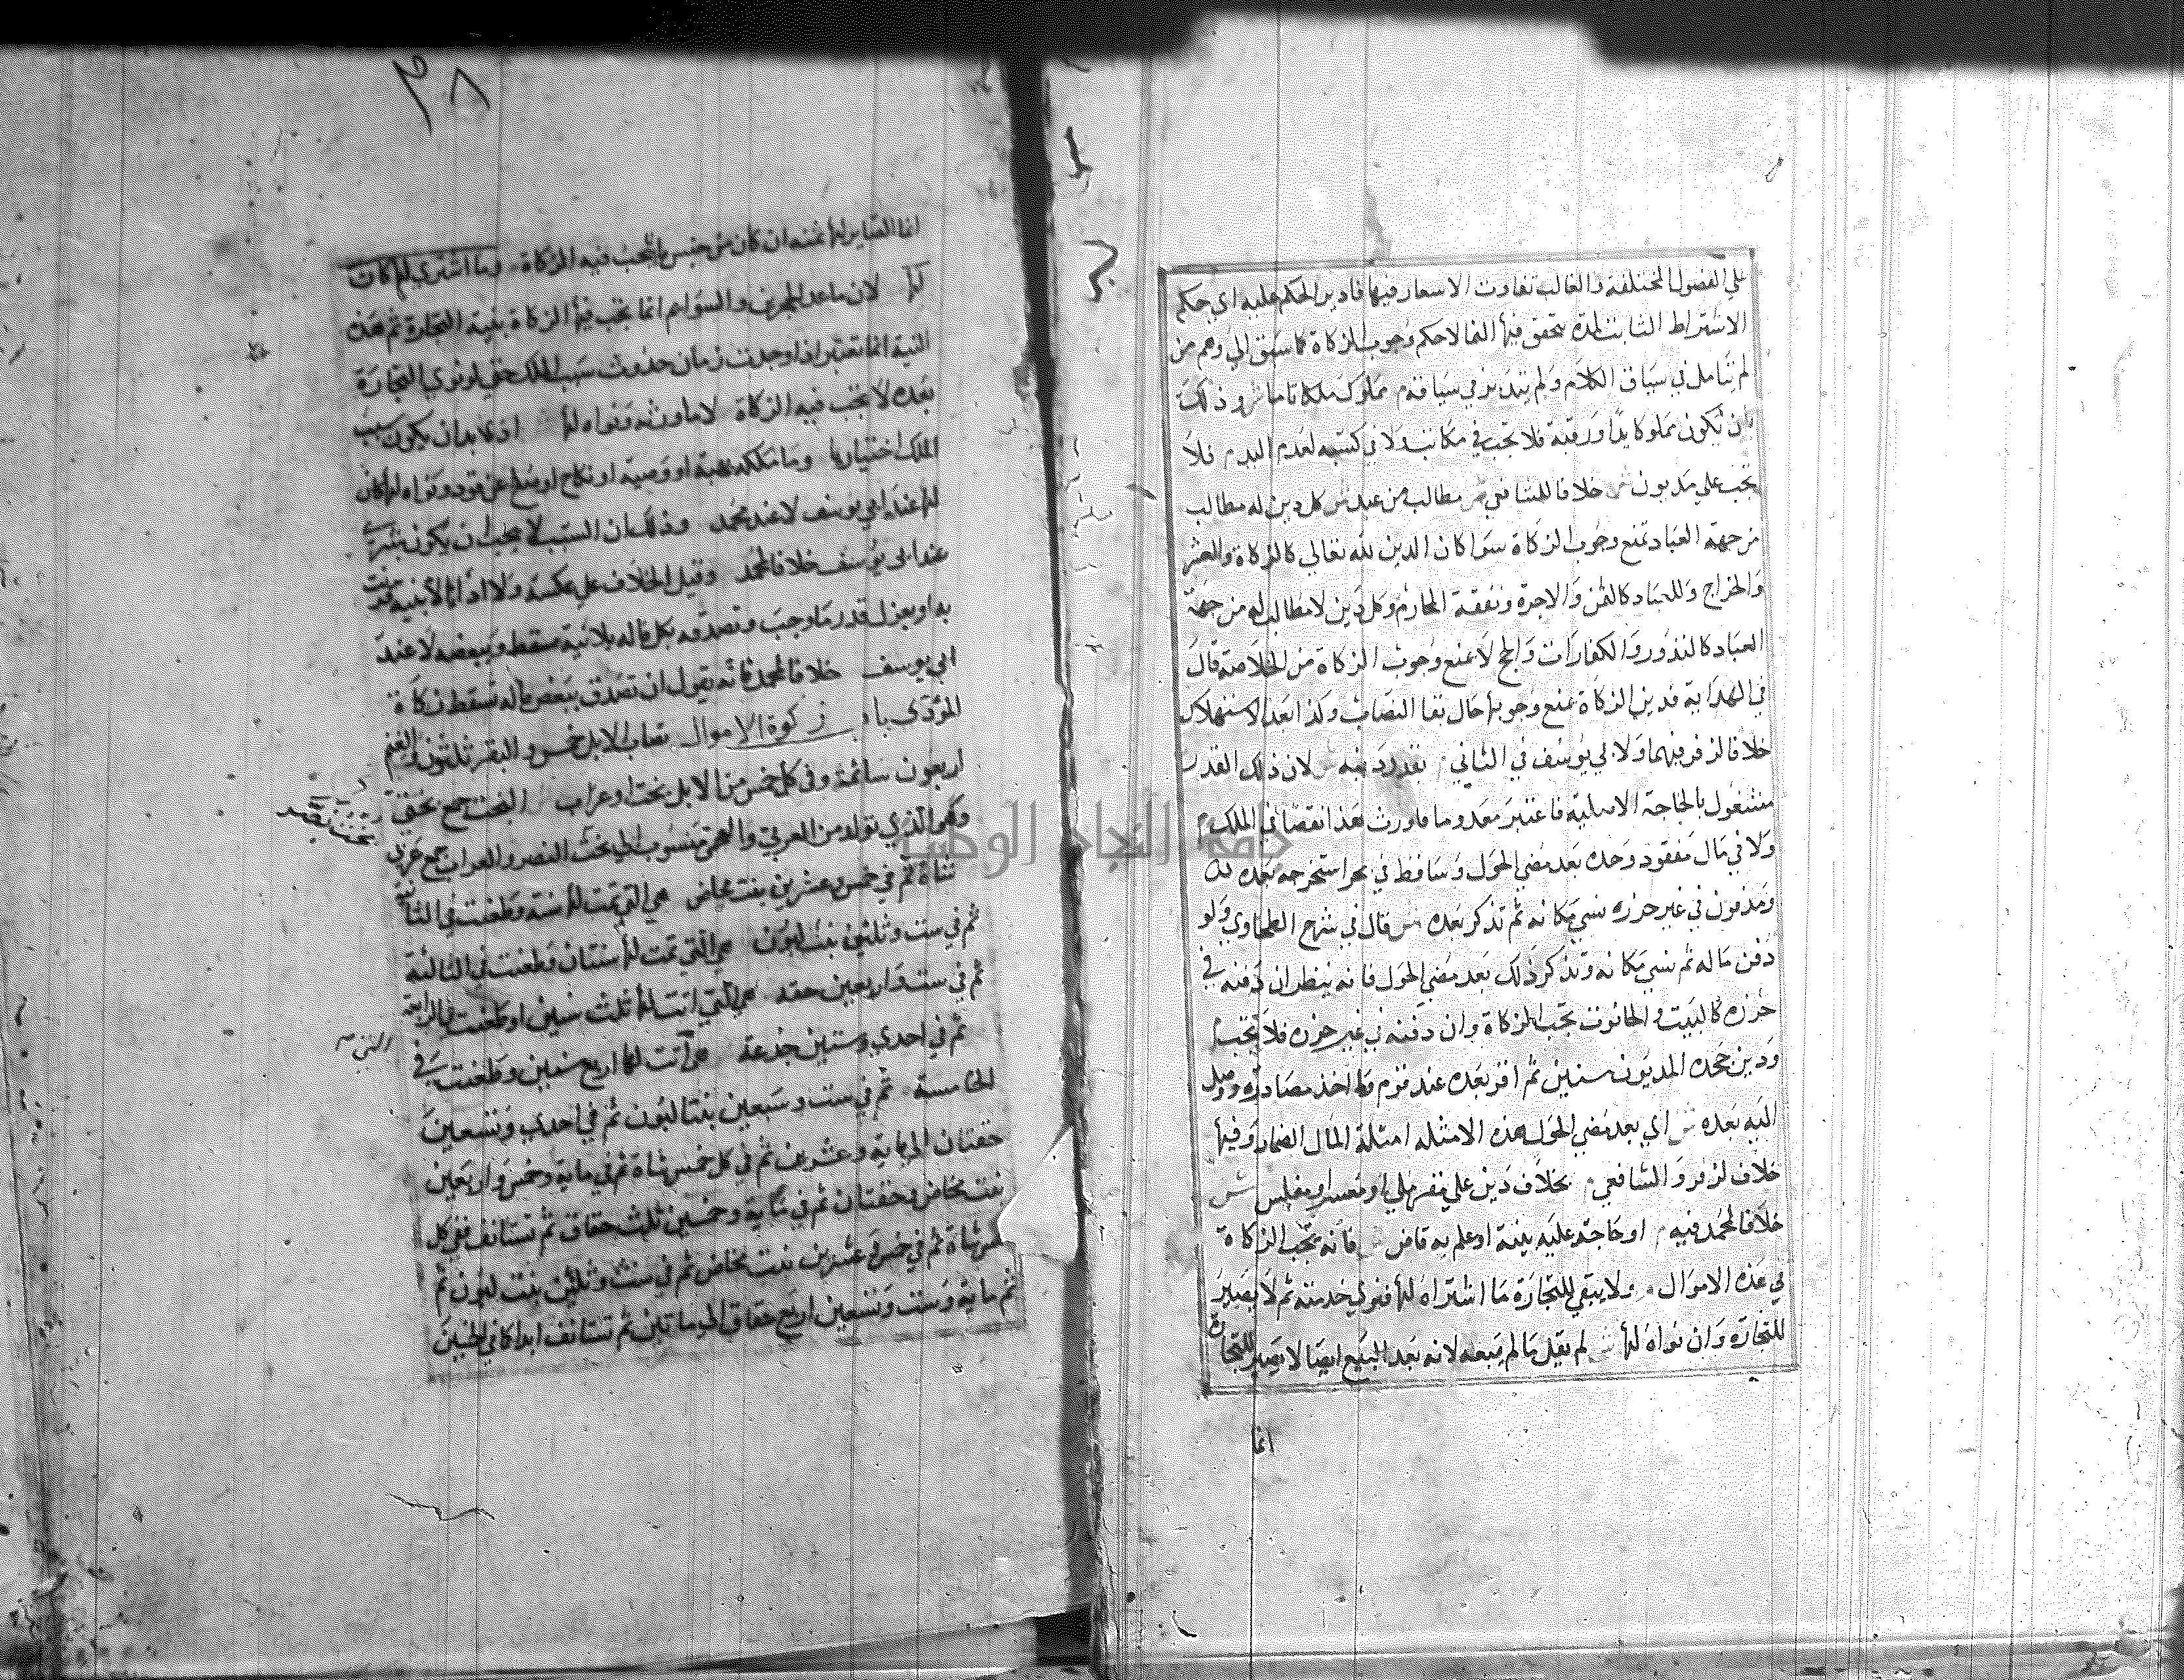 علي الفصول المختلفة والغالب تفاوت الاسعار فيها فادير الحكم عليه اي حكم
الاشتراط الثابت لمدة يتحقق فيها النما لا حكم وجوب الزكاة كما سبق الي وهم من
لم يتامل في سياق الكلام ولم يتدبر في سياقه م مملوك ملكا تاما ش وذلك
بان يكون مملوكا يدا ورقبة فلا تجب في مكاتب ولا في كسبه لعدم اليد م فلا
تجب علي مديون ش خلافا للشافعي م مطالب من عبد ش كل دين له مطالب
من جهة العباد تمنع وجوب الزكاة سوا كان الدين لله تعالي كالزكاة والعشر
والخراج وللعباد كالثمن والاجرة ونفقة المحارم وكل دين لا مطالب له من جهة
العباد كالنذور والكفارات والحج لا يمنع وجوب الزكاة من الخلاصة قال
في الهداية فدين الزكاة تمنع وجوبها حال بقا النصاب وكذا بعد الاستهلاك
خلافا لزفر فيهما ولابي يوسف في الثاني م بقدر دينه ش لان ذلك القدر
مشغول بالحاجة الاصلية فاعتبر معدوما فاورث هذا نقصا في الملك م
ولا في مال مفقود وجده بعد مضي الحول وساقط في بحر استخرجه بعده
ومدفون في غير حرزه نسي مكانه ثم تذكر بعده ش قال في شرح الطحاوي ولو
دفن ماله ثم نسي مكانه وتذكر ذلك بعد مضي الحول فانه ينظر ان دفنه في
حرزه كالبيت والحانوت تجب الزكاة وان دفنه في غير حرزه فلا تجب م
ودين جحده المديون سنين ثم اقر بعده عند قوم وما اخذ مصادرة ووصل
اليه بعده ش اي بعد مضي الحول هذه الامثله امثلة المال الضمار وفيها
خلاف لزفر والشافعي م بخلاف دين علي مقر ملي او معسر او مفلس ش
خلافا لمحمد فيه م او جاحد عليه بينة او علم به قاض ش فانه تجب الزكاة
في هذه الاموال م ولا يبقي للتجارة ما اشتراه لها فنوي خدمته ثم لا يصير
للتجارة وان نواه لها ش لم يقل ما لم يبعه لانه بعد البيع ايضا لا يصير للتجارة
انما
٣٨
انما الصاير لها ثمنه ان كان من جنس ما تجب فيه الزكاة وما اشتري لها كان
لها لان ما عدا الحجرين والسوايم انما تجب فيها الزكاة بنية التجارة ثم هذه
النية انما تعتبر اذا وجدت زمان حدوث سبب الملك حتي لو نوي التجارة
بعده لا تجب فيه الزكاة لا ما ورثه ونواه لها اذ لا بد ان يكون سبب
الملك اختياريا وما ملكه بهبة او وصية او نكاح او صلح عن قود ونواه لها كان
لها عند ابي يوسف لا عند محمد وذلك ان السبب لا يجب ان يكون شري
عند ابي يوسف خلافا لمحمد وقيل الخلاف علي عكسه ولا اداء الا بنية قرنت
به او بعزل قدر ما وجب وتصدقه بكل ماله بلا نية مسقط وببعضه لا عند
ابي يوسف خلافا لمحمد فانه يقول ان تصدق ببعض ماله تسقط زكاة
المؤدى باب زكوة الاموال نصاب الابل خمس والبقر ثلثون والغنم
اربعون سائمة وفي كل خمس من الابل بخت او عراب البخت جمع بختي
وهو الذي تولد من العربي والعجمي منسوب الي بخت نصر والعراب جمع عربي
شاة ثم في خمس وعشرين بنت مخاض هي التي تمت لها سنة وطعنت في الثانية
ثم في ست وثلثين بنت لبون هي التي تمت لها سنتان وطعنت في الثالثة
ثم في ست واربعين حقه هي التي اتت لها ثلث سنين وطعنت في الرابعة
ثم في احدي وستين جذعة هي اتت لها اربع سنين وطعنت في
الخامسة ثم في ست وسبعين بنتا لبون ثم في احدي وتسعين
حقتان الي ماية وعشرين ثم في كل خمس شاة ثم في ماية وخمس واربعين
بنت مخاض وحقتان ثم في ماية وخمسين ثلث حقاق ثم تستانف ففي كل
خمس شاة ثم في خمس وعشرين بنت مخاض ثم في ست وثلثين بنت لبون ثم
في ماية وست وتسعين اربع حقاق الي ماتين ثم تستانف ابدا كما في الخمسين
جامعة النجاح الوطنية